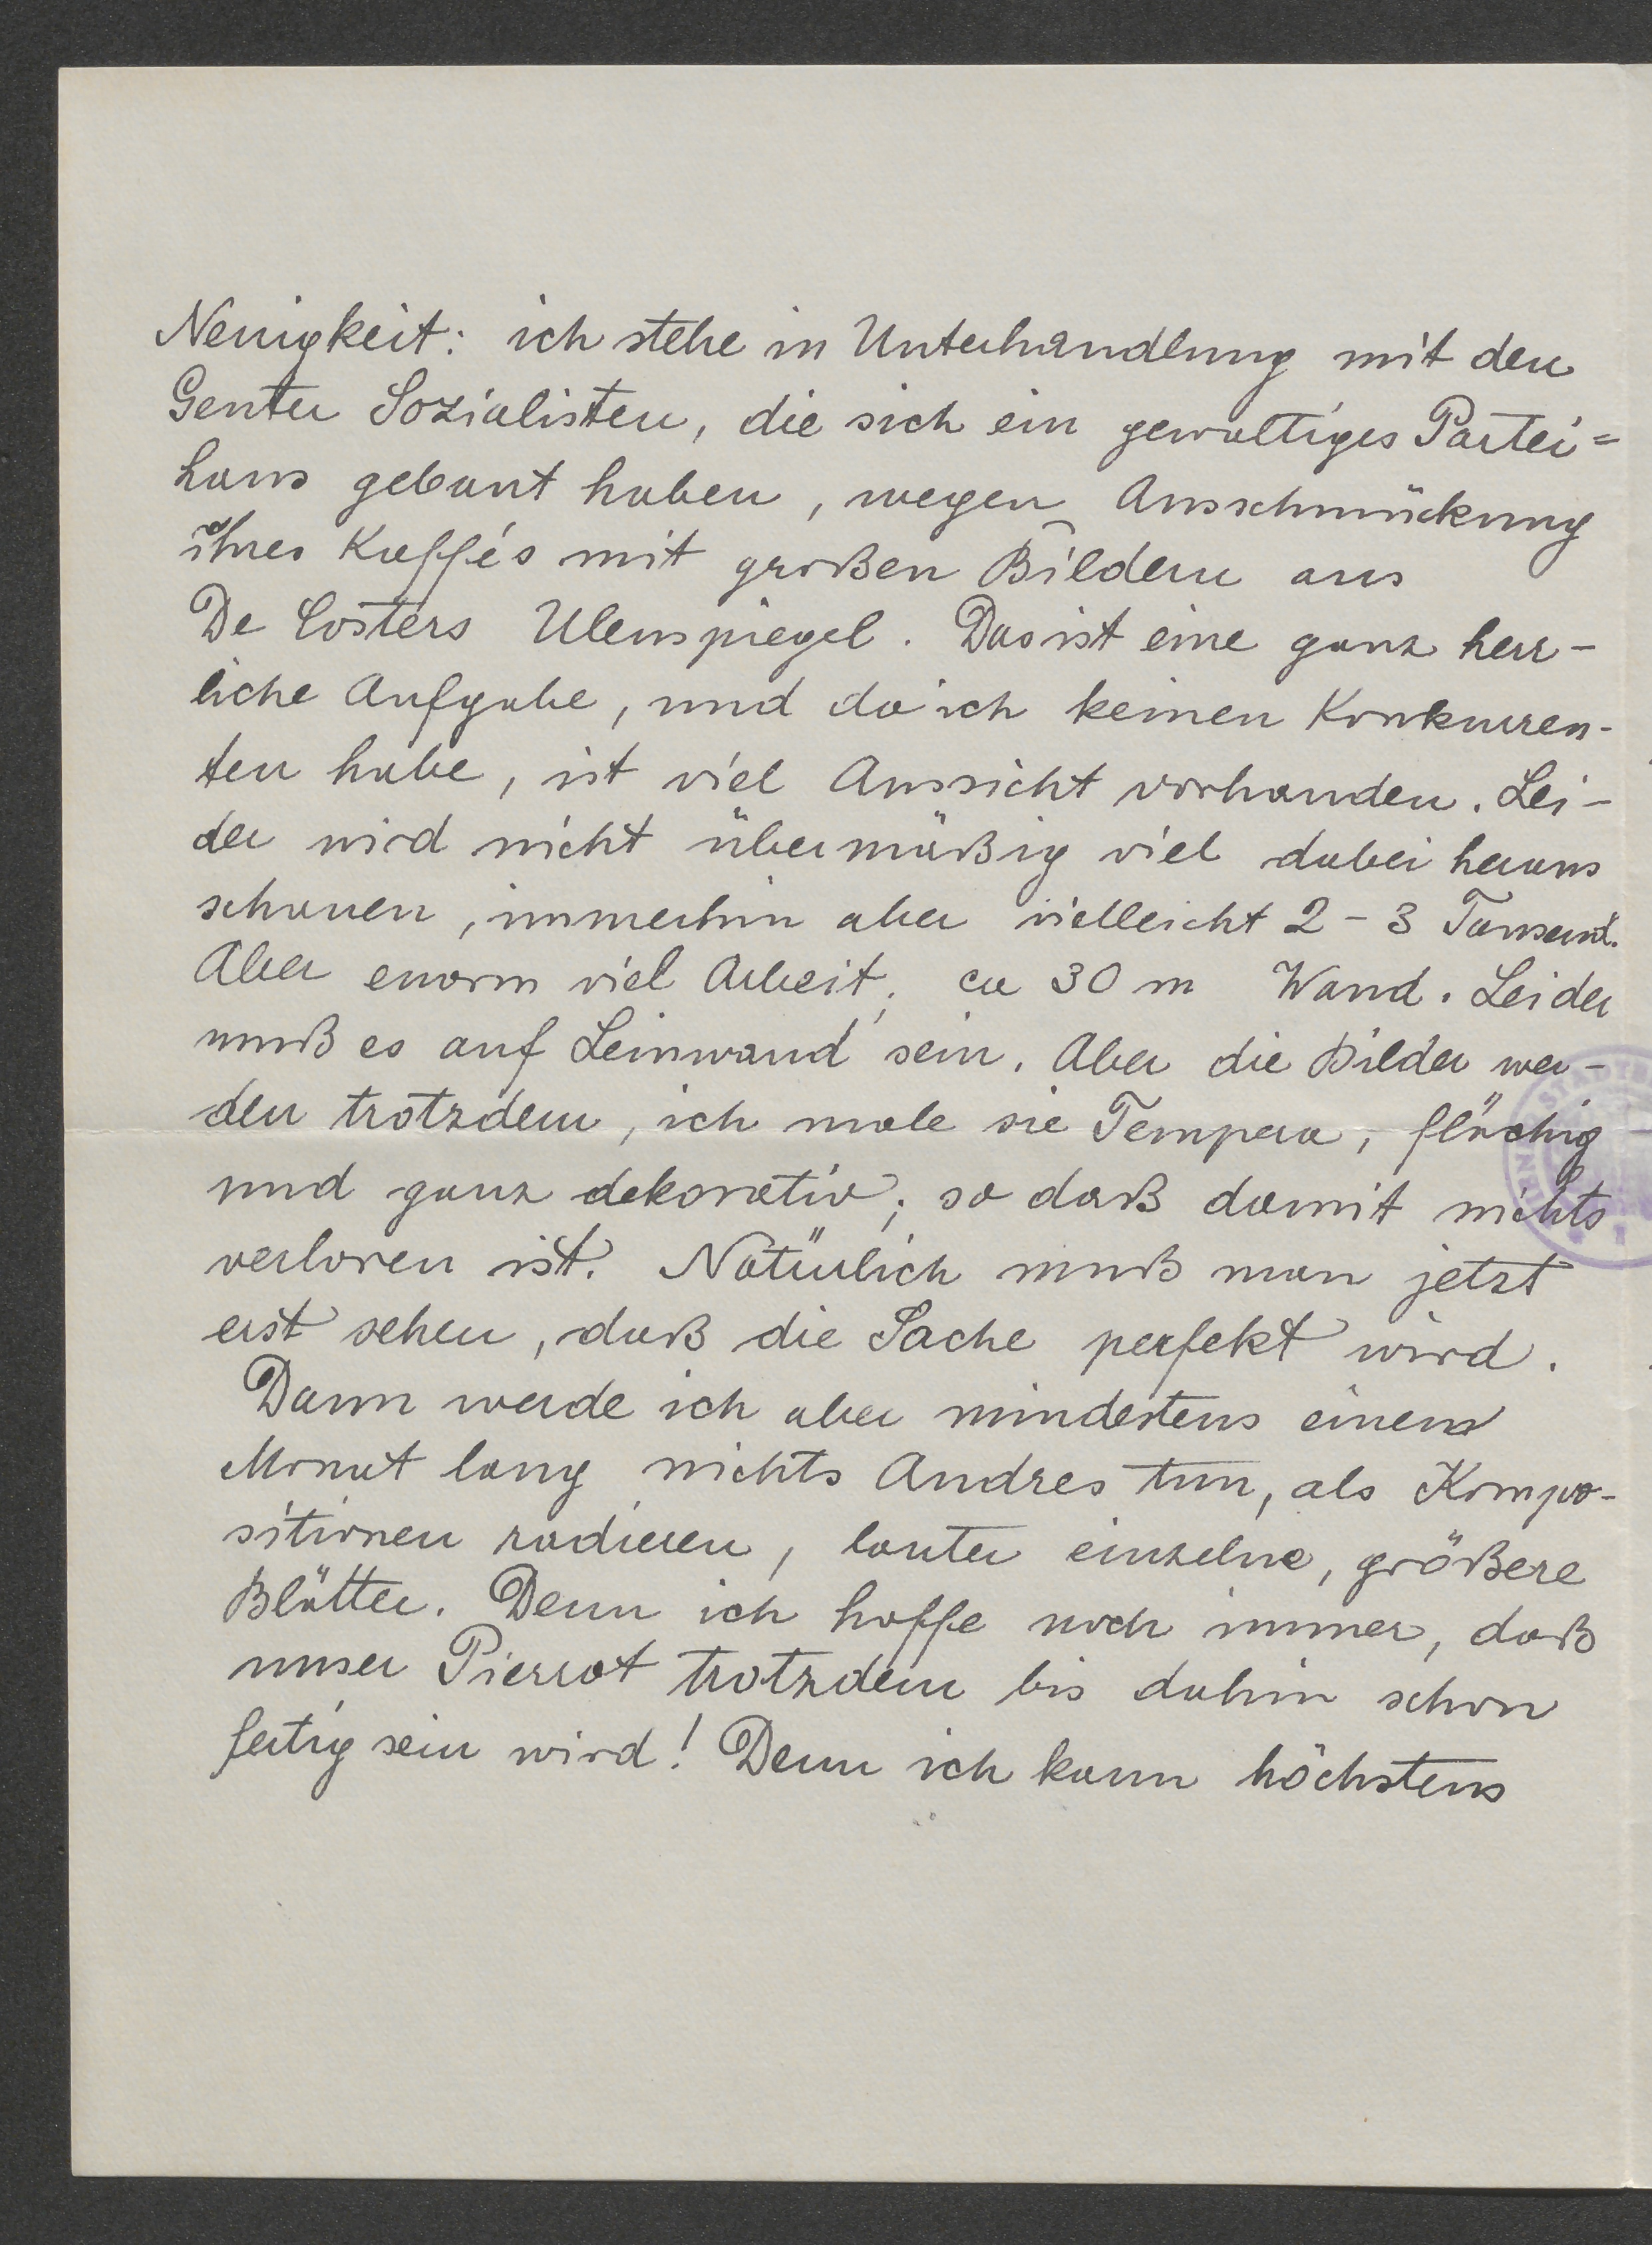 Neuigkeit: ich stehe in Unterhandlung mit den
Genter Sozialisten, die sich ein gewaltiges Partei=
haus gebaut haben, wegen Ausschmückung
ihres Kaffés mit großen Bildern aus
De Costers Ulenspiegel. Das ist eine ganz herr-
liche Aufgabe, und da ich keinen Konkurren-
ten habe, ist viel Aussicht vorhanden. Lei-
der wird nicht übermäßig viel dabei heraus
schauen, immerhin aber vielleicht 2-3 Tausend.
Aber enorm viel Arbeit, ca 30 m Wand. Leider
muß es auf Leinwand sein. Aber die Bilder wer-
den trotzdem, ich male sie Tempera, flächig
und ganz dekorativ; so daß damit nichts
verloren ist. Natürlich muß man jetzt
erst sehen, daß die Sache perfekt wird.
Dann werde ich aber mindestens einen
Monat lang nichts Andres tun, als Kompo-
sitionen radieren, lauter einzelne, größere
Blätter. Denn ich hoffe noch immer, daß
unser Pierrot trotzdem bis dahin schon
fertig sein wird! Denn ich kann höchstens